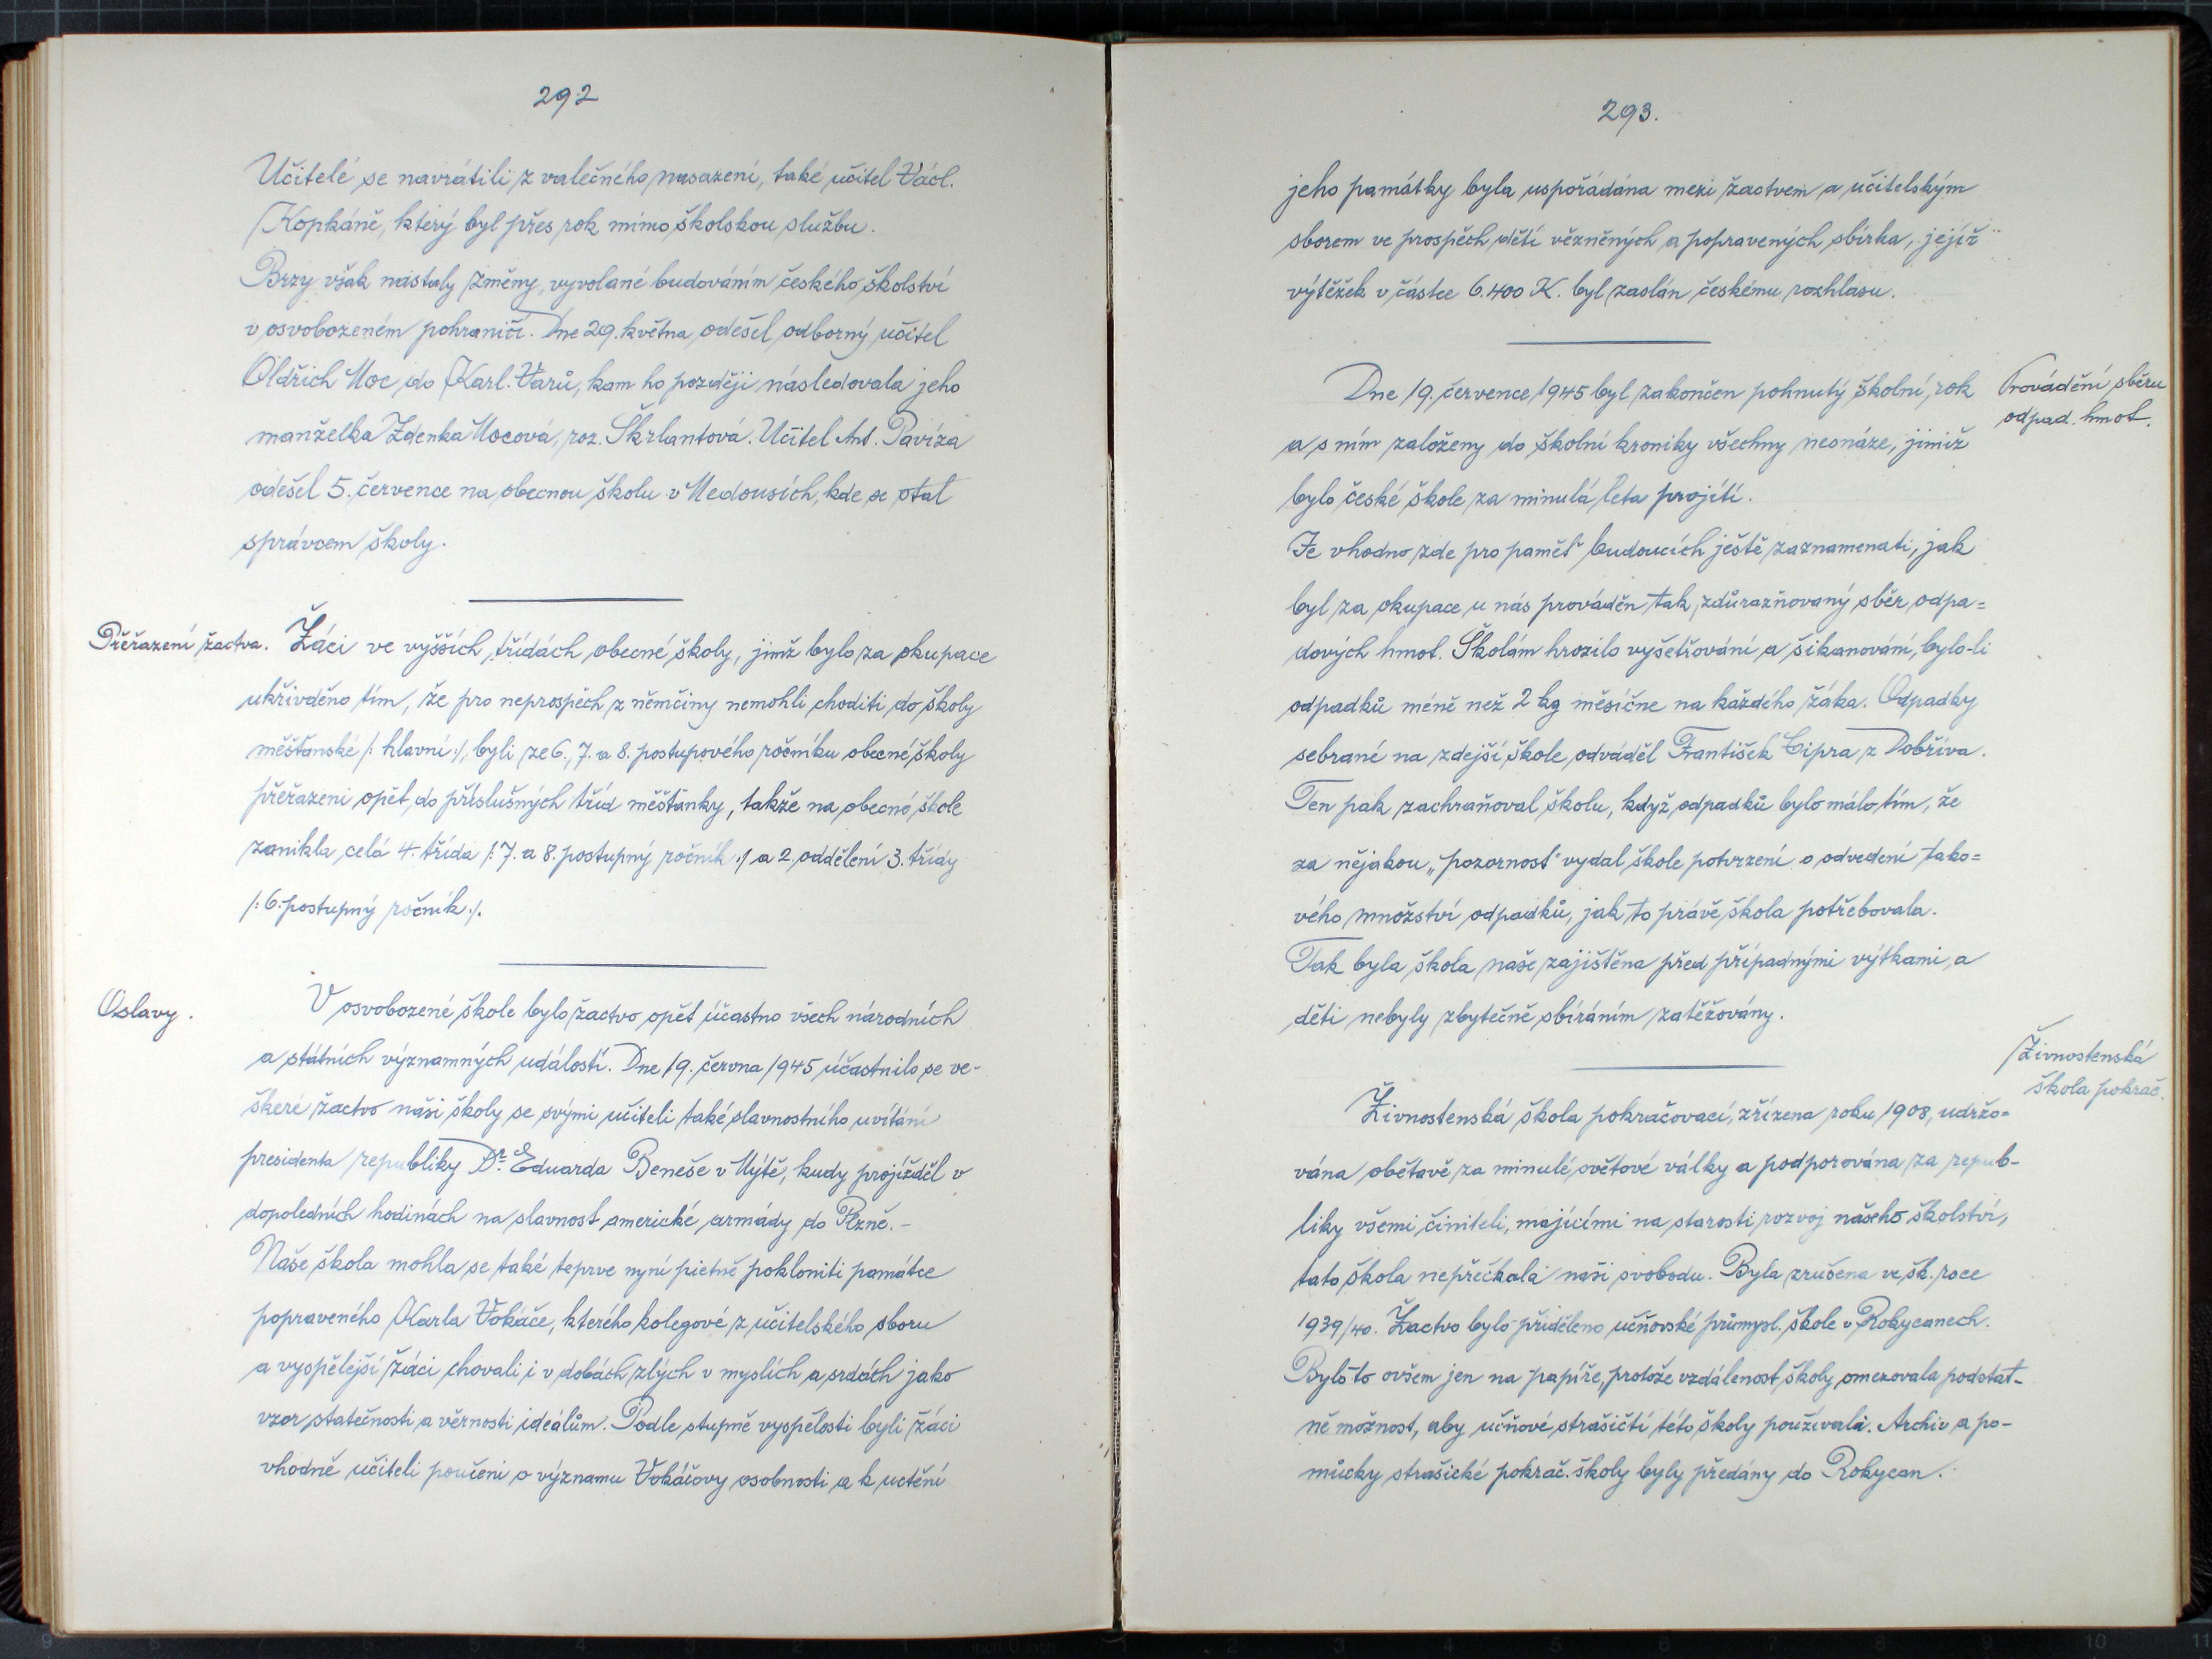 292
Učitelé se navrátili z valečného nasazení, také učitel Václ.
Kopkáně, který byl přes rok mimo školskou službu.
Brzy však nastaly změny, vyvolané budováním českého školství
v osvobozeném pohraničí. Dne 29. května odešel odborný učitel
Oldřich Moc do Karl. Varů, kam ho později následovala jeho
manželka Zdenka Mocová, roz. Škrlantová. Učitel Ant. Pavíza
odešel 5. července na obecnou školu v Medousích, kde se stal
správcem školy.
Přeřazení žactva.
Žáci ve vyšších třídách obecné školy, jimž bylo za okupace
ukřivděno tím, že pro neprospěch z němčiny nemohli choditi do školy
měšťanské /: hlavní :/, byli ze 6., 7. a 8. postupového ročníku obecné školy
přeřazeni opět do příslušných tříd měšťanky, takže na obecné škole
zanikla celá 4. třída /: 7. a 8. postupný ročník :/ a 2. oddělení 3. třídy
/: 6. postupný ročník :/.
Oslavy.
V osvobozené škole bylo žactvo opět účastno všech národních
a státních významných událostí. Dne 19. června 1945 účastnilo se ve-
škeré žactvo naší školy se svými učiteli také slavnostního uvítání
presidenta republiky Dr. Eduarda Beneše v Mýtě, kudy projížděl v
dopoledních hodinách na slavnost americké armády do Plzně.-
Naše škola mohla se také teprve nyní pietně pokloniti památce
popraveného Karla Vokáče, kterého kolegové z učitelského sboru
a vyspělejší žáci chovali i v dobách zlých v myslích a srdcích jako
vzor statečnosti a věrnosti ideálům. Podle stupně vyspělosti byli žáci
vhodně učiteli poučeni o významu Vokáčovy osobnosti a k uctění
293.
jeho památky byla uspořádána mezi žactvem a učitelským
sborem ve prospěch dětí vězněných a popravených sbírka, jejíž
výtěžek v částce 6.400 K. byl zaslán českému rozhlasu.
Provádění sběru
odpad. hmot.
Dne 19. července 1945 byl zakončen pohnutý školní rok
a s ním založeny do školní kroniky všechny nesnáze, jimiž
bylo české škole za minulá léta projíti.
Je vhodno zde pro paměť budoucích ještě zaznamenati, jak
byl za okupace u nás prováděn tak zdůrazňovaný sběr odpa=
dových hmot. Školám hrozilo vyšetřování a šikanování, bylo-li
odpadků méně než 2 kg měsíčne na každého žáka. Odpadky
sebrané na zdejší škole odváděl František Cipra z Dobříva.
Ten pak zachraňoval školu, když odpadků bylo málo tím, že
za nějakou „pozornost" vydal škole potvrzení o odvedení tako=
vého množství odpadků, jak to právě škola potřebovala.
Tak byla škola naše zajištěna před případnými výtkami, a
děti nebyly zbytečně sbíráním zatěžovány.
Živnostenská
škola pokrač.
Živnostenská škola pokračovací, zřízena roku 1908, udržo=
vána obětavě za minulé světové války a podporována za repub-
liky všemi činiteli, majícími na starosti rozvoj našeho školství,
tato škola nepřečkala naši svobodu. Byla zrušena ve šk. roce
1939/40. Žactvo bylo přiděleno učňovské průmysl. škole v Rokycanech.
Bylo to ovšem jen na papíře, protože vzdálenost školy omezovala podstat-
ně možnost, aby učňové strašičtí této školy používali. Archiv a po-
můcky strašické pokrač. školy byly předány do Rokycan.